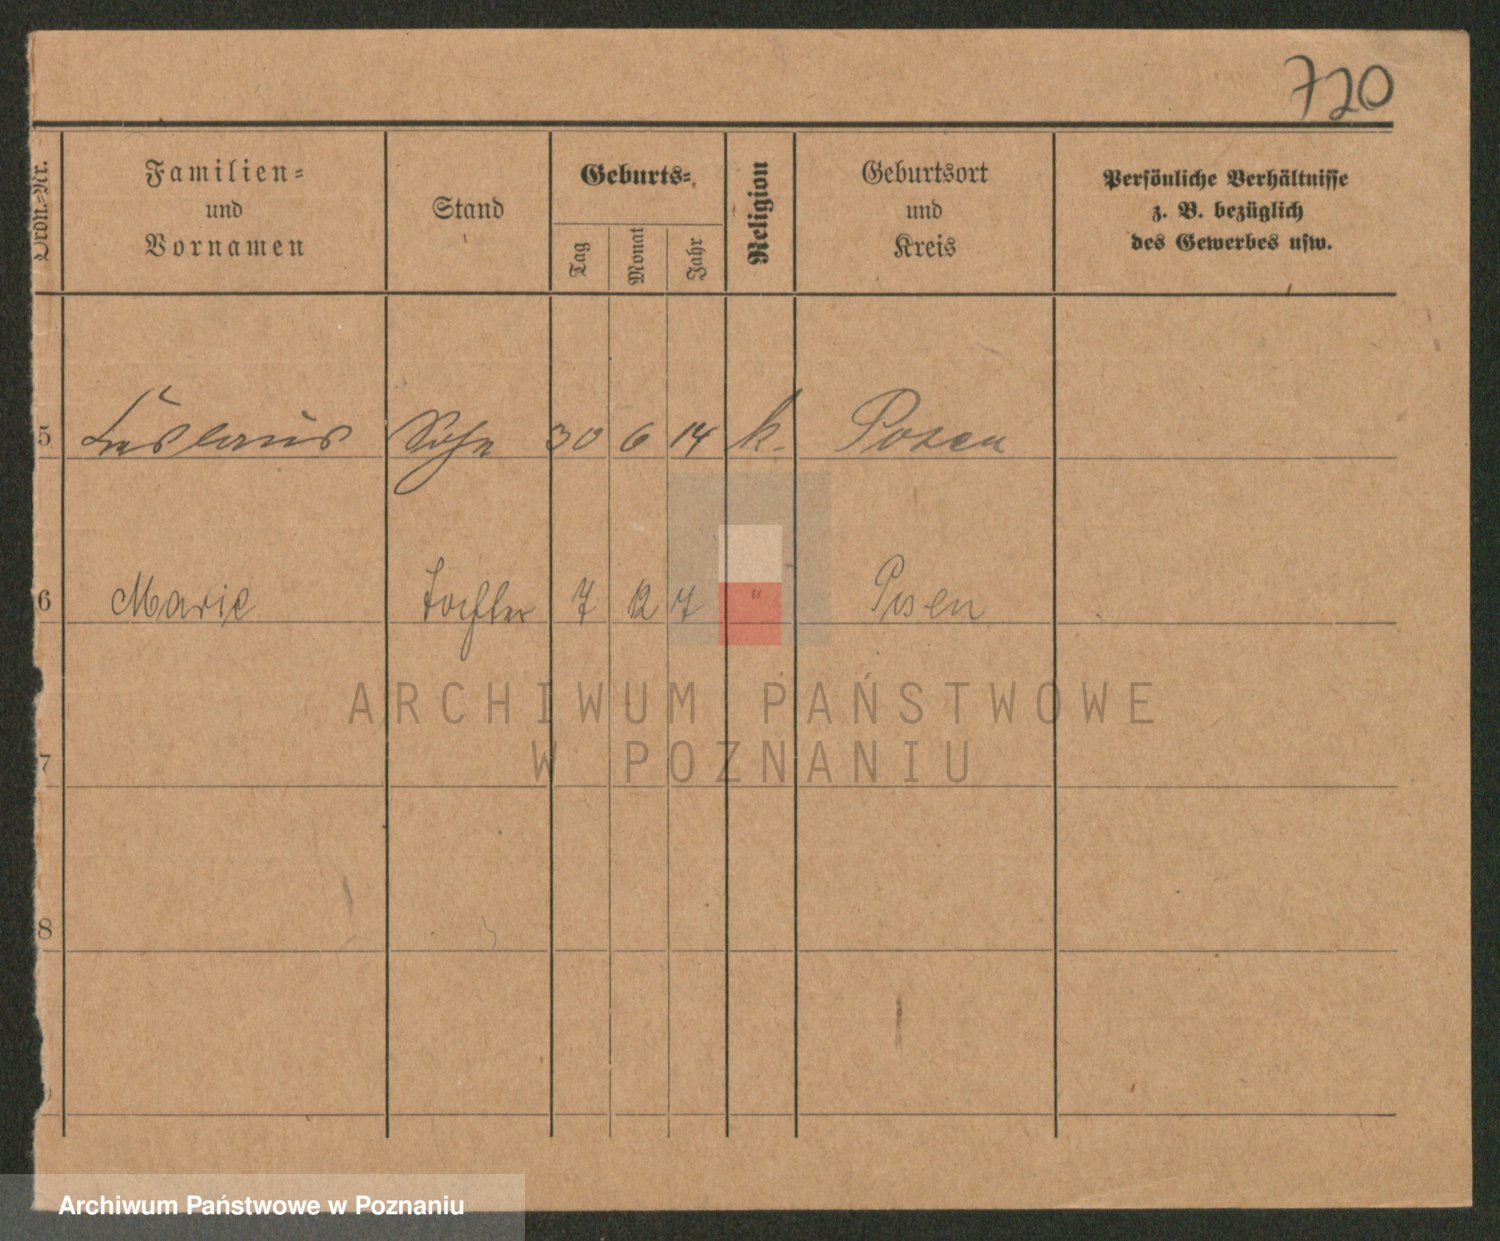 720
Ordn.-Nr.
Familien-
und
Vornamen
Stand
Geburts-
Tag
Monat
Jahr
Religion
Geburtsort
und
Kreis
Persönliche Verhältnisse
z. B. bezüglich
des Gewerbes usw.
5 Sohn 30 6 14 k. Posen
6 Marie Tochter 7 12 17 " Posen
ARCHIWUM PAŃSTWOWE
W POZNANIU
7
8
Archiwum Państwowe w Poznaniu